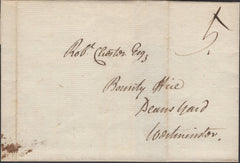 5
Robt. Chester Esq
Bounty Office
Deans Yard
Westminster.